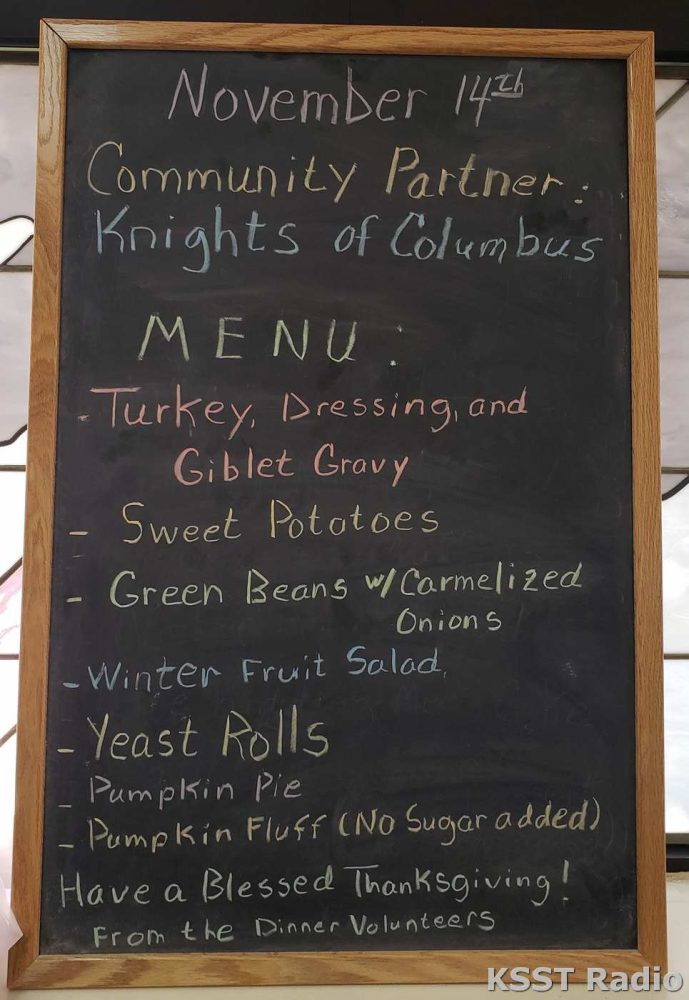 November 14th
Community Partner:
Knights of Columbus
MENU:
- Turkey, Dressing, and
Giblet Gravy
- Sweet Potatoes
- Green Beans w/ Carmelized
Onions
- Winter Fruit Salad
- Yeast Rolls
- Pumpkin Pie
- Pumpkin Fluff (No Sugar added)
Have a Blessed Thanksgiving!
From the Dinner Volunteers
KSST Radio